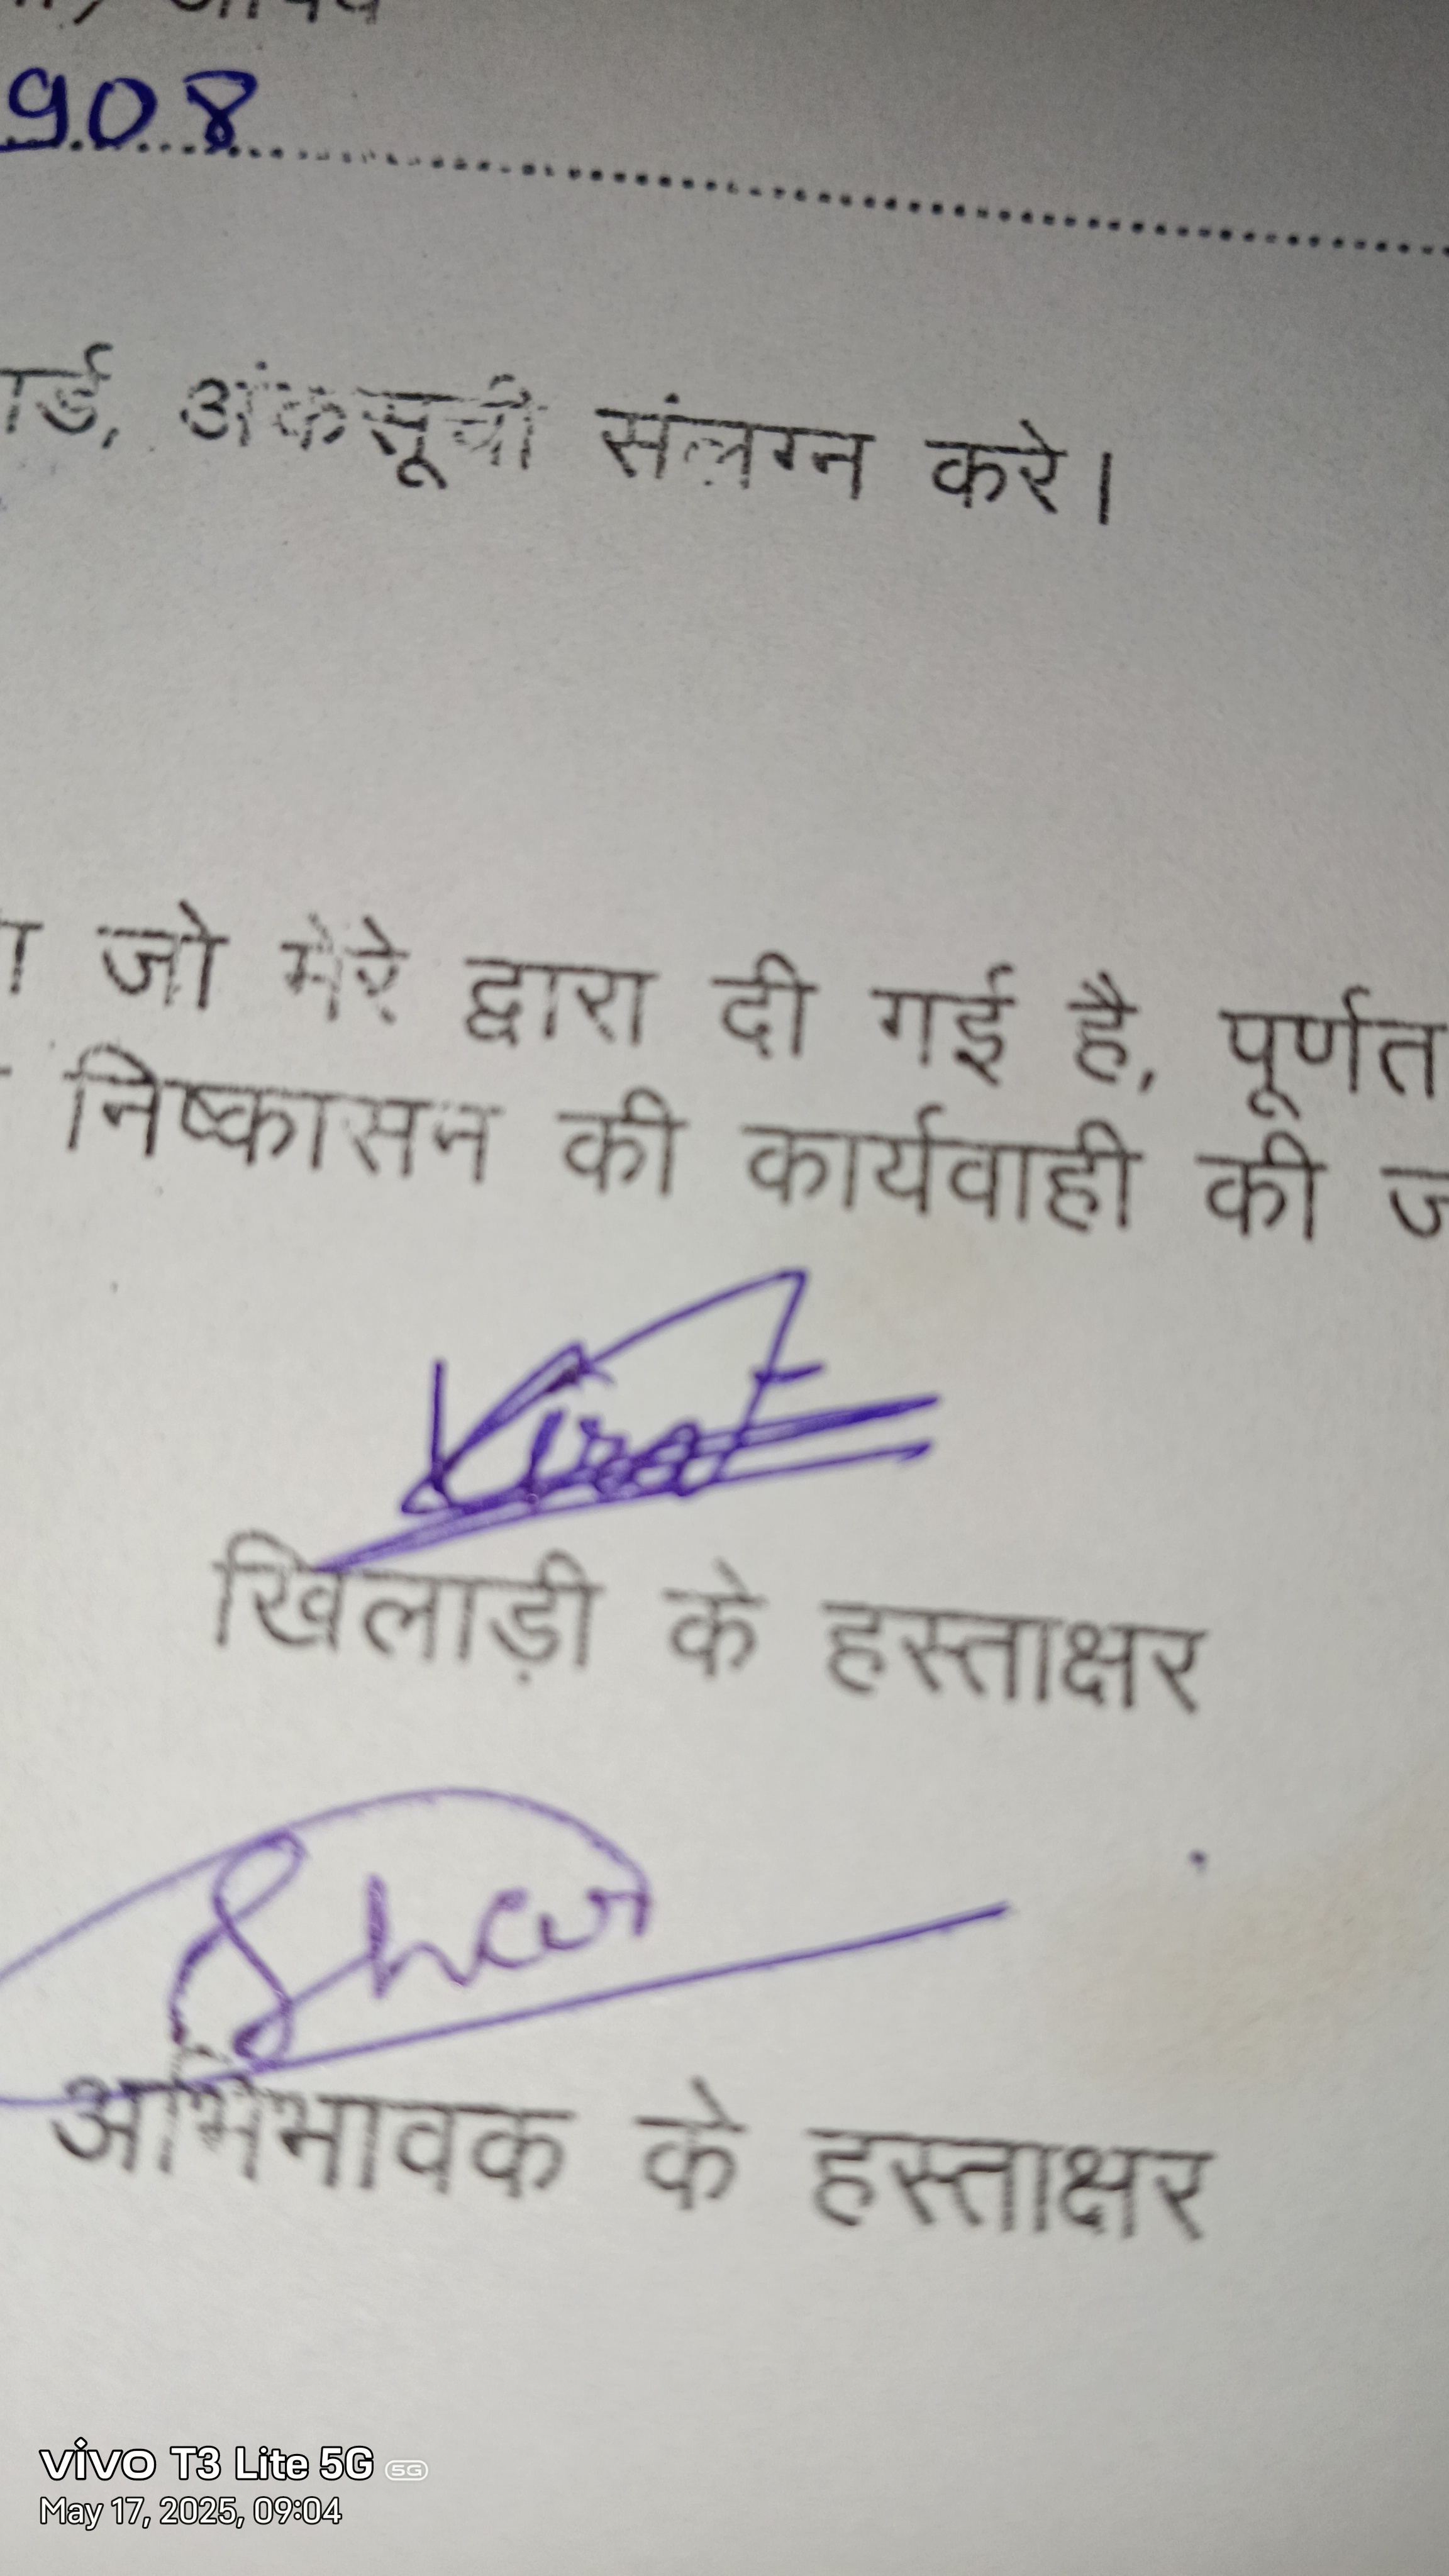 908
अंकसूची संलग्न करे।
जो मेरे द्वारा दी गई है, पूर्णत
निष्कासन की कार्यवाही की
Virat
खिलाड़ी के हस्ताक्षर
अभिभावक के हस्ताक्षर
vivo T3 Lite 5G 5G
May 17, 2025, 09:04